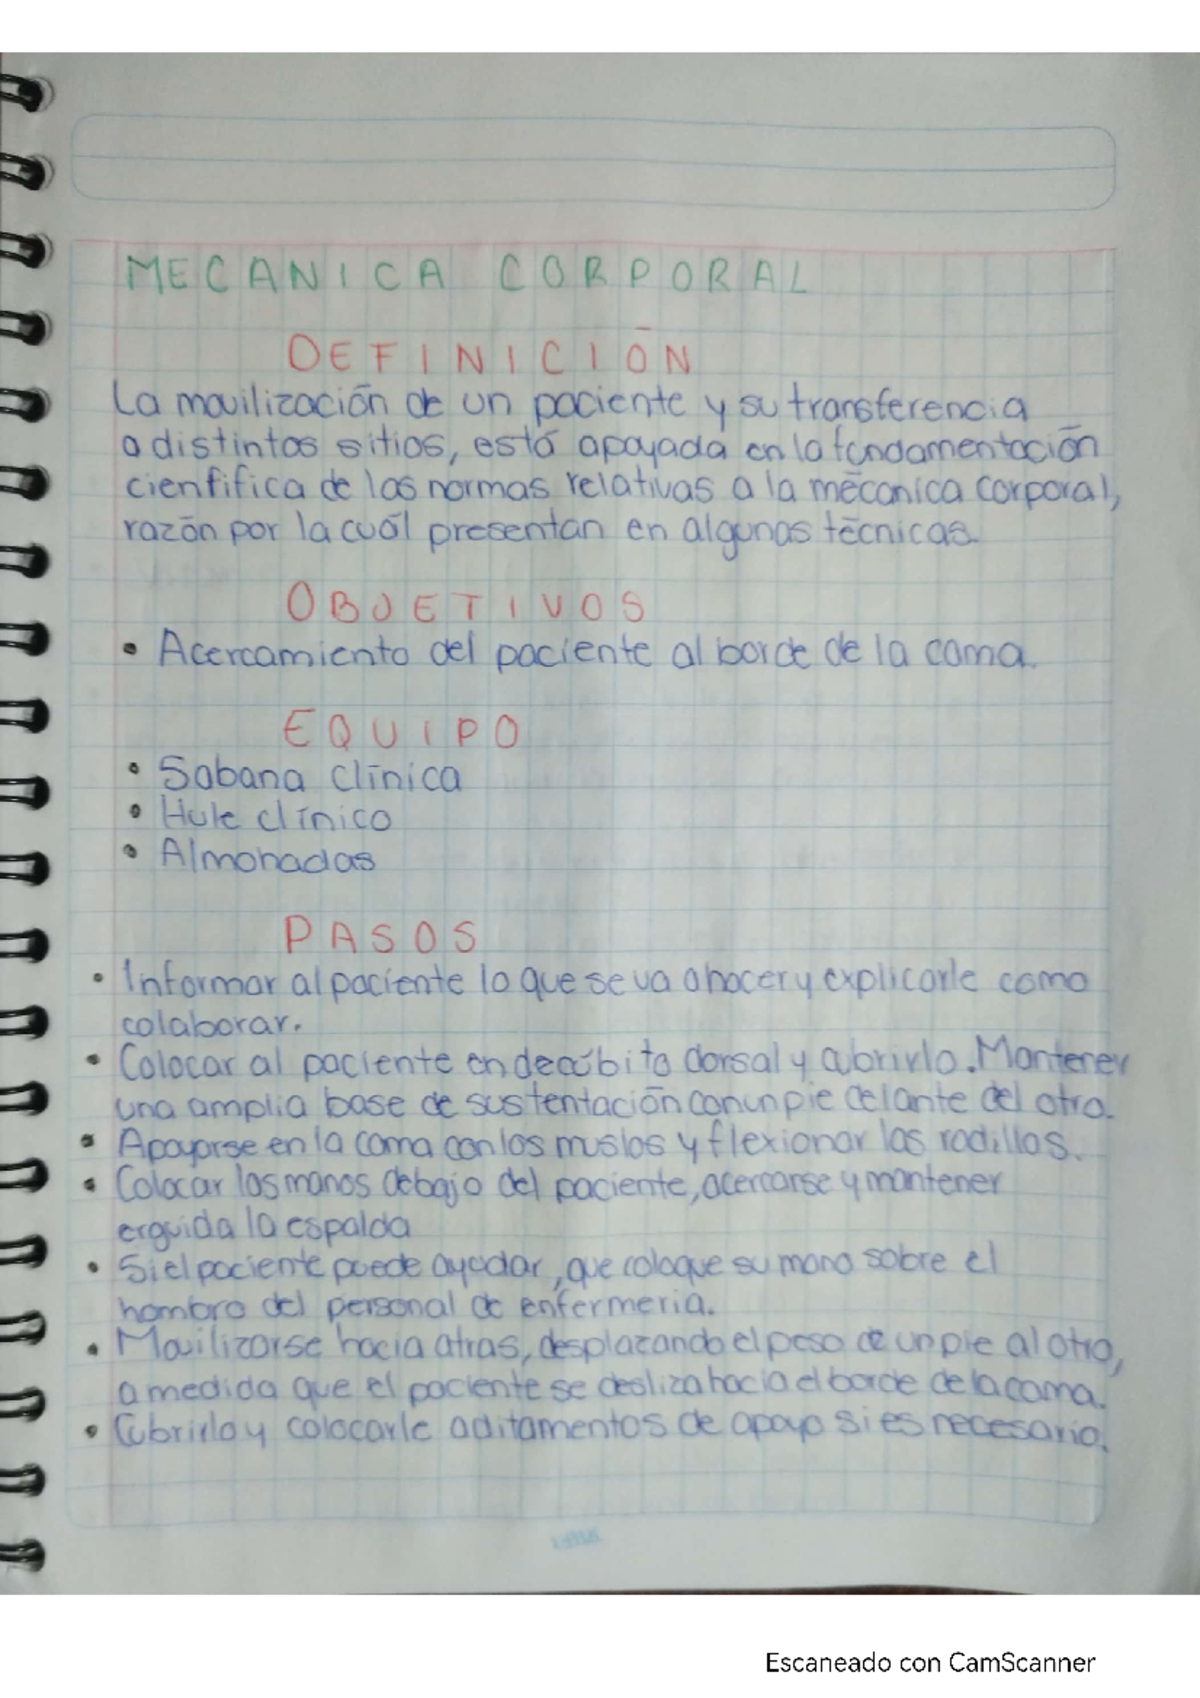 MECANICA CORPORAL
DEFINICIÓN
La movilización de un paciente y su transferencia
a distintos sitios, está apoyada en la fundamentación
cienfifica de las normas relativas a la mécanica corporal,
razón por la cuál presentan en algunas técnicas.
OBJETIVOS
• Acercamiento del paciente al borde de la cama.
EQUIPO
• Sabana clínica
• Hule clínico
• Almohadas
PASOS
• Informar al paciente lo que se va a hacer y explicarle como
colaborar.
• Colocar al paciente en decúbito dorsal y cubrirlo. Mantener
una amplia base de sustentación con un pie delante del otro.
• Apoyarse en la cama con los muslos y flexionar las rodillas.
• Colocar las manos debajo del paciente, acercarse y mantener
erguida la espalda
• Si el paciente puede ayudar, que coloque su mano sobre el
hombro del personal de enfermeria.
• Movilizarse hacia atras, desplazando el peso de un pie al otro,
a medida que el paciente se desliza hacia el borde de la cama.
• Cubrirlo y colocarle aditamentos de apoyo si es necesario.
Escaneado con CamScanner